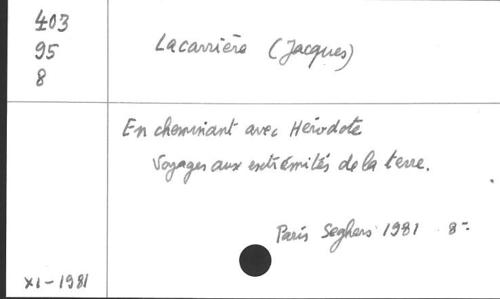 403
95
8
Lacarrière (Jacques)
En cheminant avec Hérodote
Voyages aux extrémités de la terre.
Paris Seghers 1981 8=
XI-1981